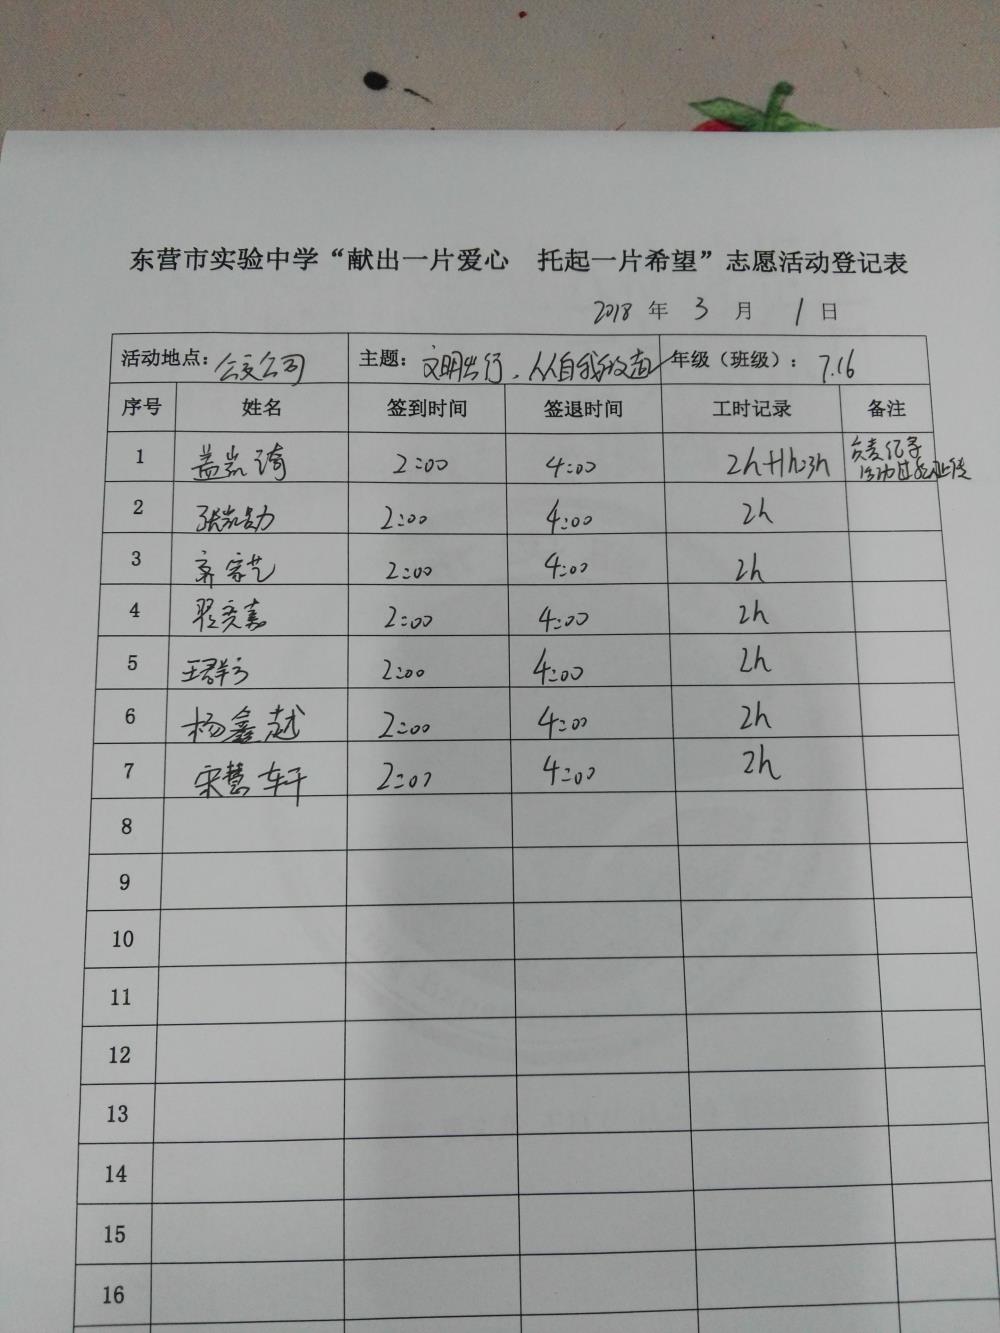 东营市实验中学“献出一片爱心 托起一片希望”志愿活动登记表
2018 年 3 月 1 日
活动地点：公交公司 主题：文明出行，从自我改造 年级（班级）：7.16
序号 姓名 签到时间 签退时间 工时记录 备注
1 盖岚琦 2:00 4:00 2h+1h=3h 负责纪录
活动过程及上传
2 张凯勋 2:00 4:00 2h
3 郭家艺 2:00 4:00 2h
4 翟奕嘉 2:00 4:00 2h
5 王群方 2:00 4:00 2h
6 杨鑫越 2:00 4:00 2h
7 宋慧轩 2:00 4:00 2h
8
9
10
11
12
13
14
15
16